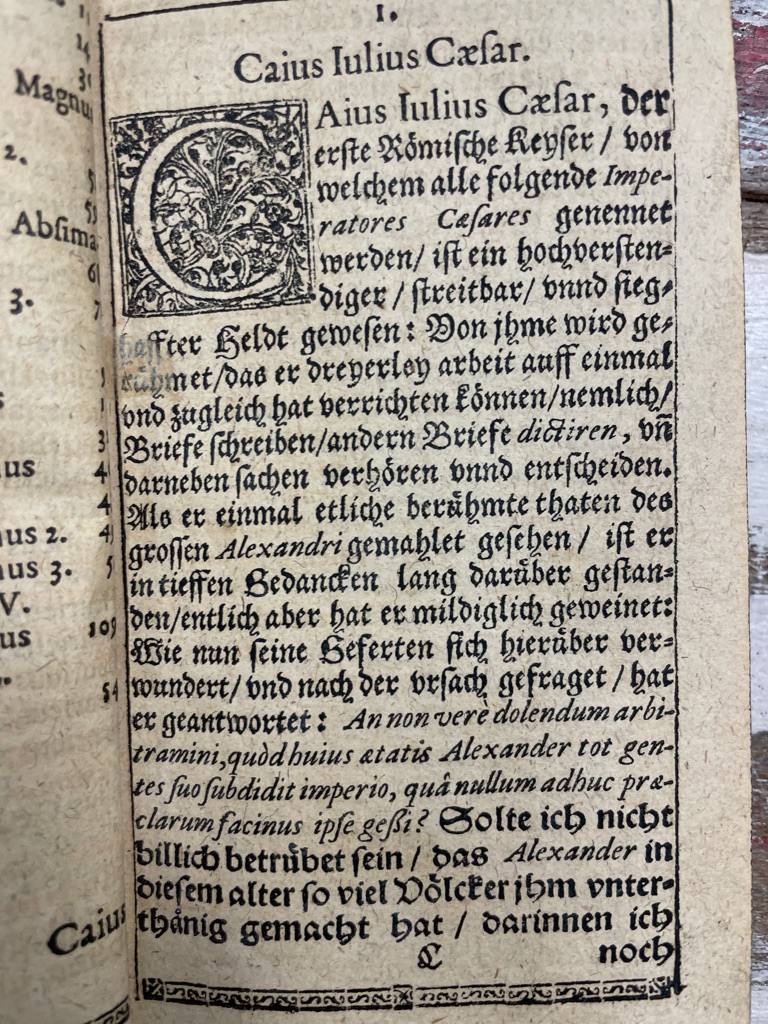 1.
Caius Iulius Cæſar.
CAius Iulius Cæſar, der
erſte Römiſche Keyſer / von
welchem alle folgende Impe-
ratores Cæſares genennet
werden/ iſt ein hochverſten-
diger / ſtreitbar/ vnnd ſieg-
haffter Heldt geweſen: Von jhme wird ge-
rühmet/das er dreyerley arbeit auff einmal
vnd zugleich hat verrichten können/nemlich/
Briefe ſchreiben/andern Briefe dictiren, vn̄
darneben ſachen verhören vnnd entſcheiden.
Als er einmal etliche berühmte thaten des
groſſen Alexandri gemahlet geſehen / iſt er
in tieffen Gedancken lang darüber geſtan-
den/entlich aber hat er mildiglich geweinet:
Wie nun ſeine Geferten ſich hierüber ver-
wundert/ vnd nach der vrſach gefraget / hat
er geantwortet: An non verè dolendum arbi-
tramini, quòd huius ætatis Alexander tot gen-
tes ſuo ſubdidit imperio, quâ nullum adhuc præ-
clarum facinus ipſe geßi? Solte ich nicht
billich betrübet ſein / das Alexander in
dieſem alter ſo viel Völcker jhm vnter-
thänig gemacht hat / darinnen ich
C noch
Magnu
2.
Abſima
3.
us
nus 2.
nus 3.
V.
us
109
54
Caius